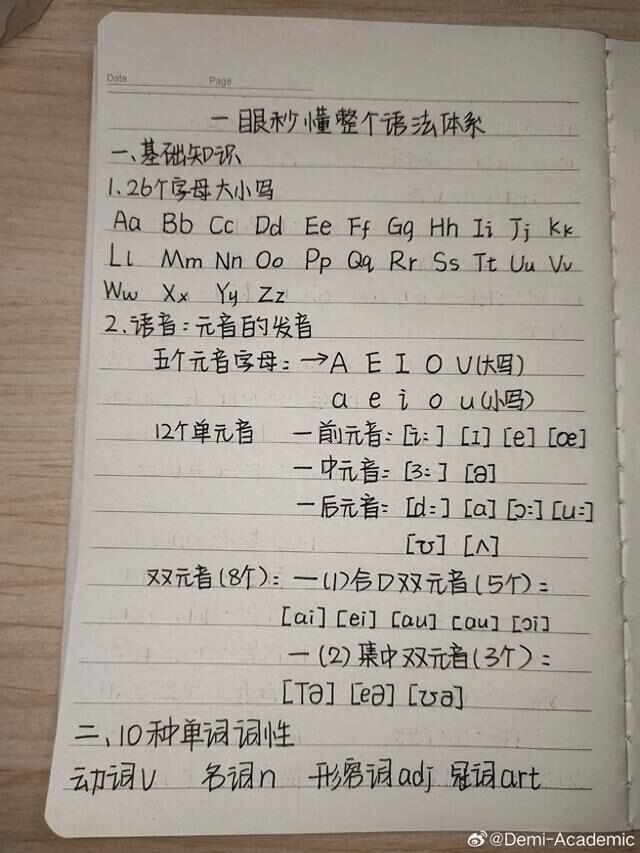 Date Page
一眼秒懂整个语法体系
一、基础知识
1.26个字母大小写
Aa Bb Cc Dd Ee Ff Gg Hh Ii Jj Kk
Ll Mm Nn Oo Pp Qq Rr Ss Tt Uu Vv
Ww Xx Yy Zz
2.语音:元音的发音
五个元音字母:→A E I O U(大写)
a e i o u(小写)
12个单元音 —前元音:[i:] [ɪ] [e] [æ]
—中元音:[ɜ:] [ə]
—后元音:[ɑ:] [ɑ] [ɔ:] [u:]
[ʊ] [ʌ]
双元音(8个):—(1)合口双元音(5个):
[ai] [ei] [au] [əu] [ɔi]
—(2)集中双元音(3个):
[Tə] [eə] [ʊə]
二、10种单词词性
动词v 名词n 形容词adj 冠词art
@Demi-Academic